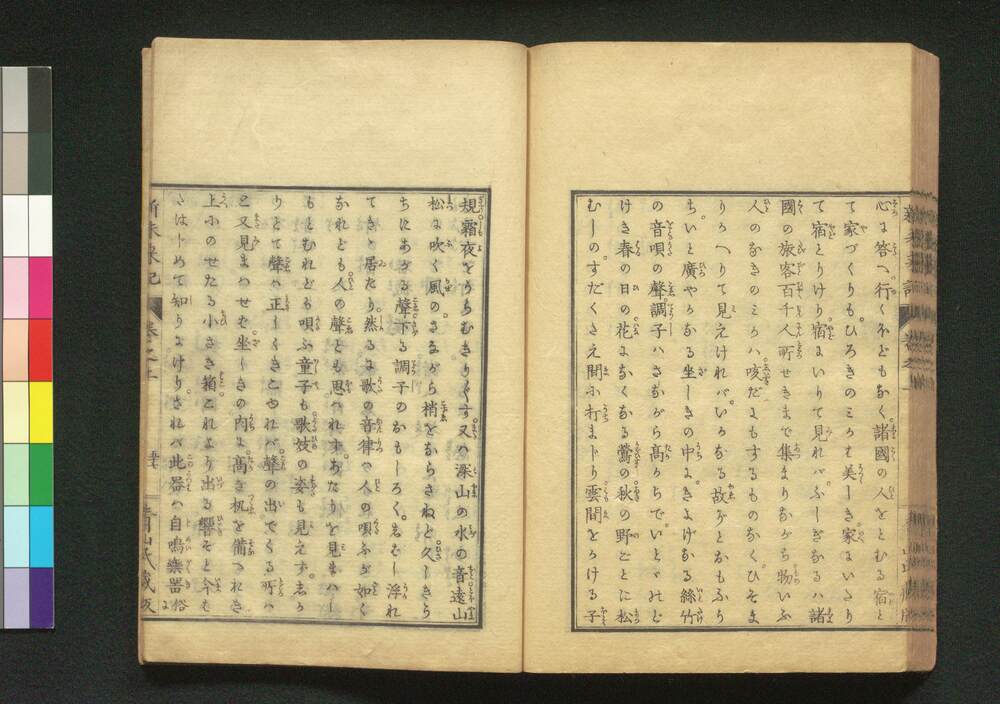 心に答へ行くほどもなく諸國の人をとむる宿と
て家づくりもひろきのミかは美しき家にいたり
て宿とりけり宿にいりて見れバふしぎなるハ諸
國の旅客百千人所せきまで集まりながら物いふ
人のなきのミかハ咳だにもするものなくひそま
りかへりて見えければバいかなる故ぞとおもふう
ちいと廣やかなる坐しきの中よきよげなる絲竹
の音唄の聲調子ハさながら高からでいと
けき春の日の花になくなる鶯の秋の野ごとに松
むしのすだくさえ間ふ打まドり雲間をかける子
規霜夜をうらむきりぎりす又ハ深山の水の音遠山
松に吹く風のさながら梢をならさねど久しきう
ちにあがる聲下る調子のおもしろく名だし浮れ
てきゝ居たり然るに歌の音律や人の唄ふが如く
なれども人の聲とも思はれずあたりを見まハし
もとむれども唄ふ童子も歌妓の姿も見えず志か
りとて聲ハ正しくきこゆれバ聲の出でくる所ハ
と又見まハせせ坐しきの内に高き机を備つれき
上にのせたる小さき箱これより出る響ぞと今も
さはじめて知りにけりされバ此器ハ自鳴樂器俗
新未来記 巻之上 青山氏藏板